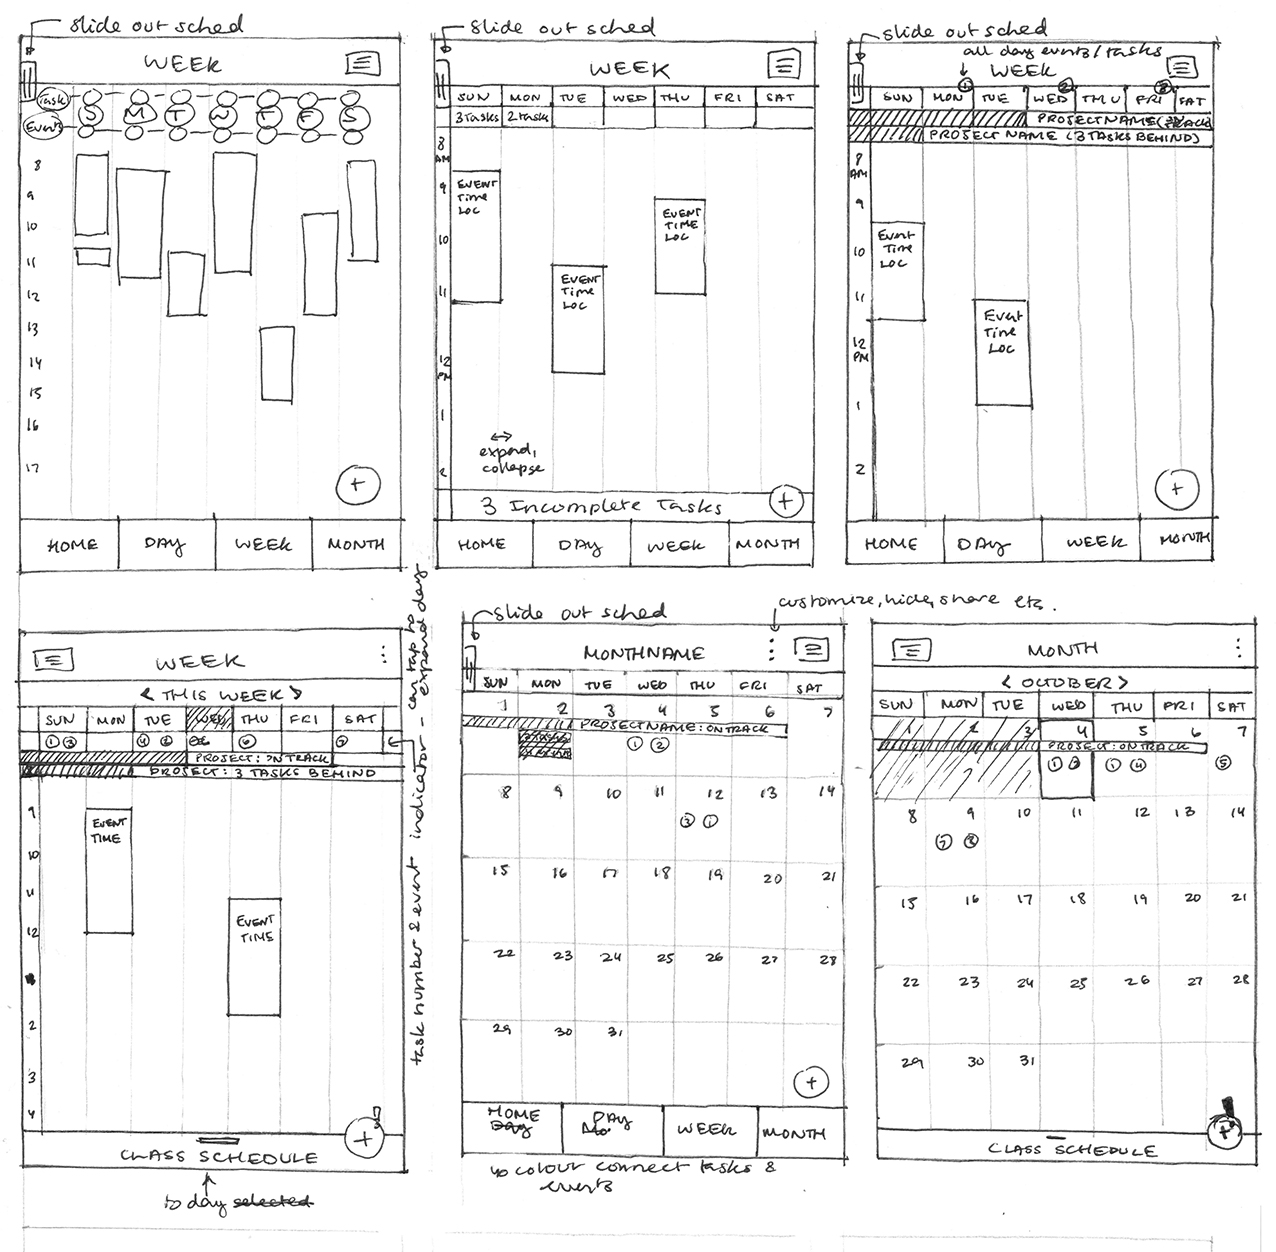 slide out sched
WEEK
Task
Event
S M T W T F S
8
9
10
11
12
13
14
15
16
17
+
HOME DAY WEEK MONTH
slide out sched
WEEK
SUN MON TUE WED THU FRI SAT
3 Tasks 2 tasks
8 AM
9
10
11
12 PM
1
2
EVENT
Time
LOC
EVENT
Time
LOC
EVENT
TIME
LOC
expand,
collapse
3 Incomplete Tasks
+
HOME DAY WEEK MONTH
slide out sched
all day events/tasks
WEEK
1 2 3
SUN MON TUE WED THU FRI SAT
PROJECT NAME
PROJECT NAME (3 TASKS BEHIND)
8 AM
9
10
11
12 PM
1
2
Event
Time
LOC
Event
Time
LOC
+
HOME DAY WEEK MONTH
WEEK
< THIS WEEK >
SUN MON TUE WED THU FRI SAT
PROJECT: ON TRACK
PROJECT: 3 TASKS BEHIND
9
10
11
12
2
3
4
EVENT
TIME
EVENT
TIME
+
CLASS SCHEDULE
today selected
task number & event indicator - can tap to
expand day
slide out sched
customize, hide, share etc.
MONTHNAME
SUN MON TUE WED THU FRI SAT
1 2 3 4 5 6 7
PROJECT NAME: ON TRACK
1 2
8 9 10 11 12 13 14
3 1
15 16 17 18 19 20 21
22 23 24 25 26 27 28
29 30 31
+
HOME DAY WEEK MONTH
Day
colour connect tasks &
events
MONTH
< OCTOBER >
SUN MON TUE WED THU FRI SAT
1 2 3 4 5 6 7
PROJECT: ON TRACK
1 3 1 4 5
8 9 10 11 12 13 14
15 16 17 18 19 20 21
22 23 24 25 26 27 28
29 30 31
+
CLASS SCHEDULE